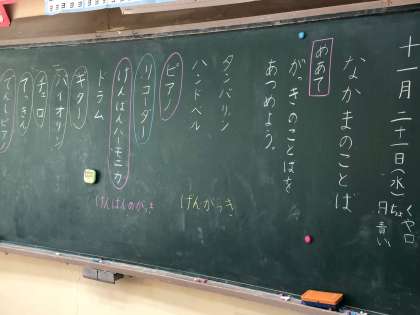 十一月二十一日(水)
なかまのことば
めあて
がっきのことばを
あつめよう。
タンバリン
ハンドベル
ピアノ
リコーダー
けんばんハーモニカ
ドラム
ギター
バイオリン
チェロ
てっきん
でんしピアノ
げんがっき
けんばんのがっき